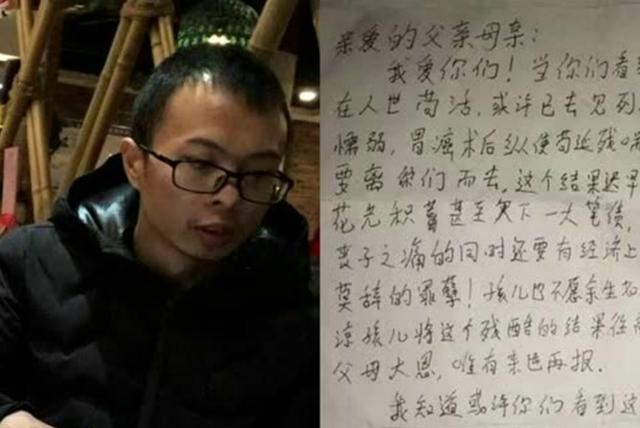 亲爱的父亲母亲:
我爱你们!当你们看到
在人世苟活,或许已去见列
懦弱,胃癌术后纵使苟延残喘
要离你们而去,这个结果迟早
花光积蓄甚至欠下一大笔债,
丧子之痛的同时还要有经济上
莫辞的罪孽!孩儿也不愿余生
凉孩儿将这个残酷的结果往前
父母大恩,唯有来世再报.
我知道或许你们看到这